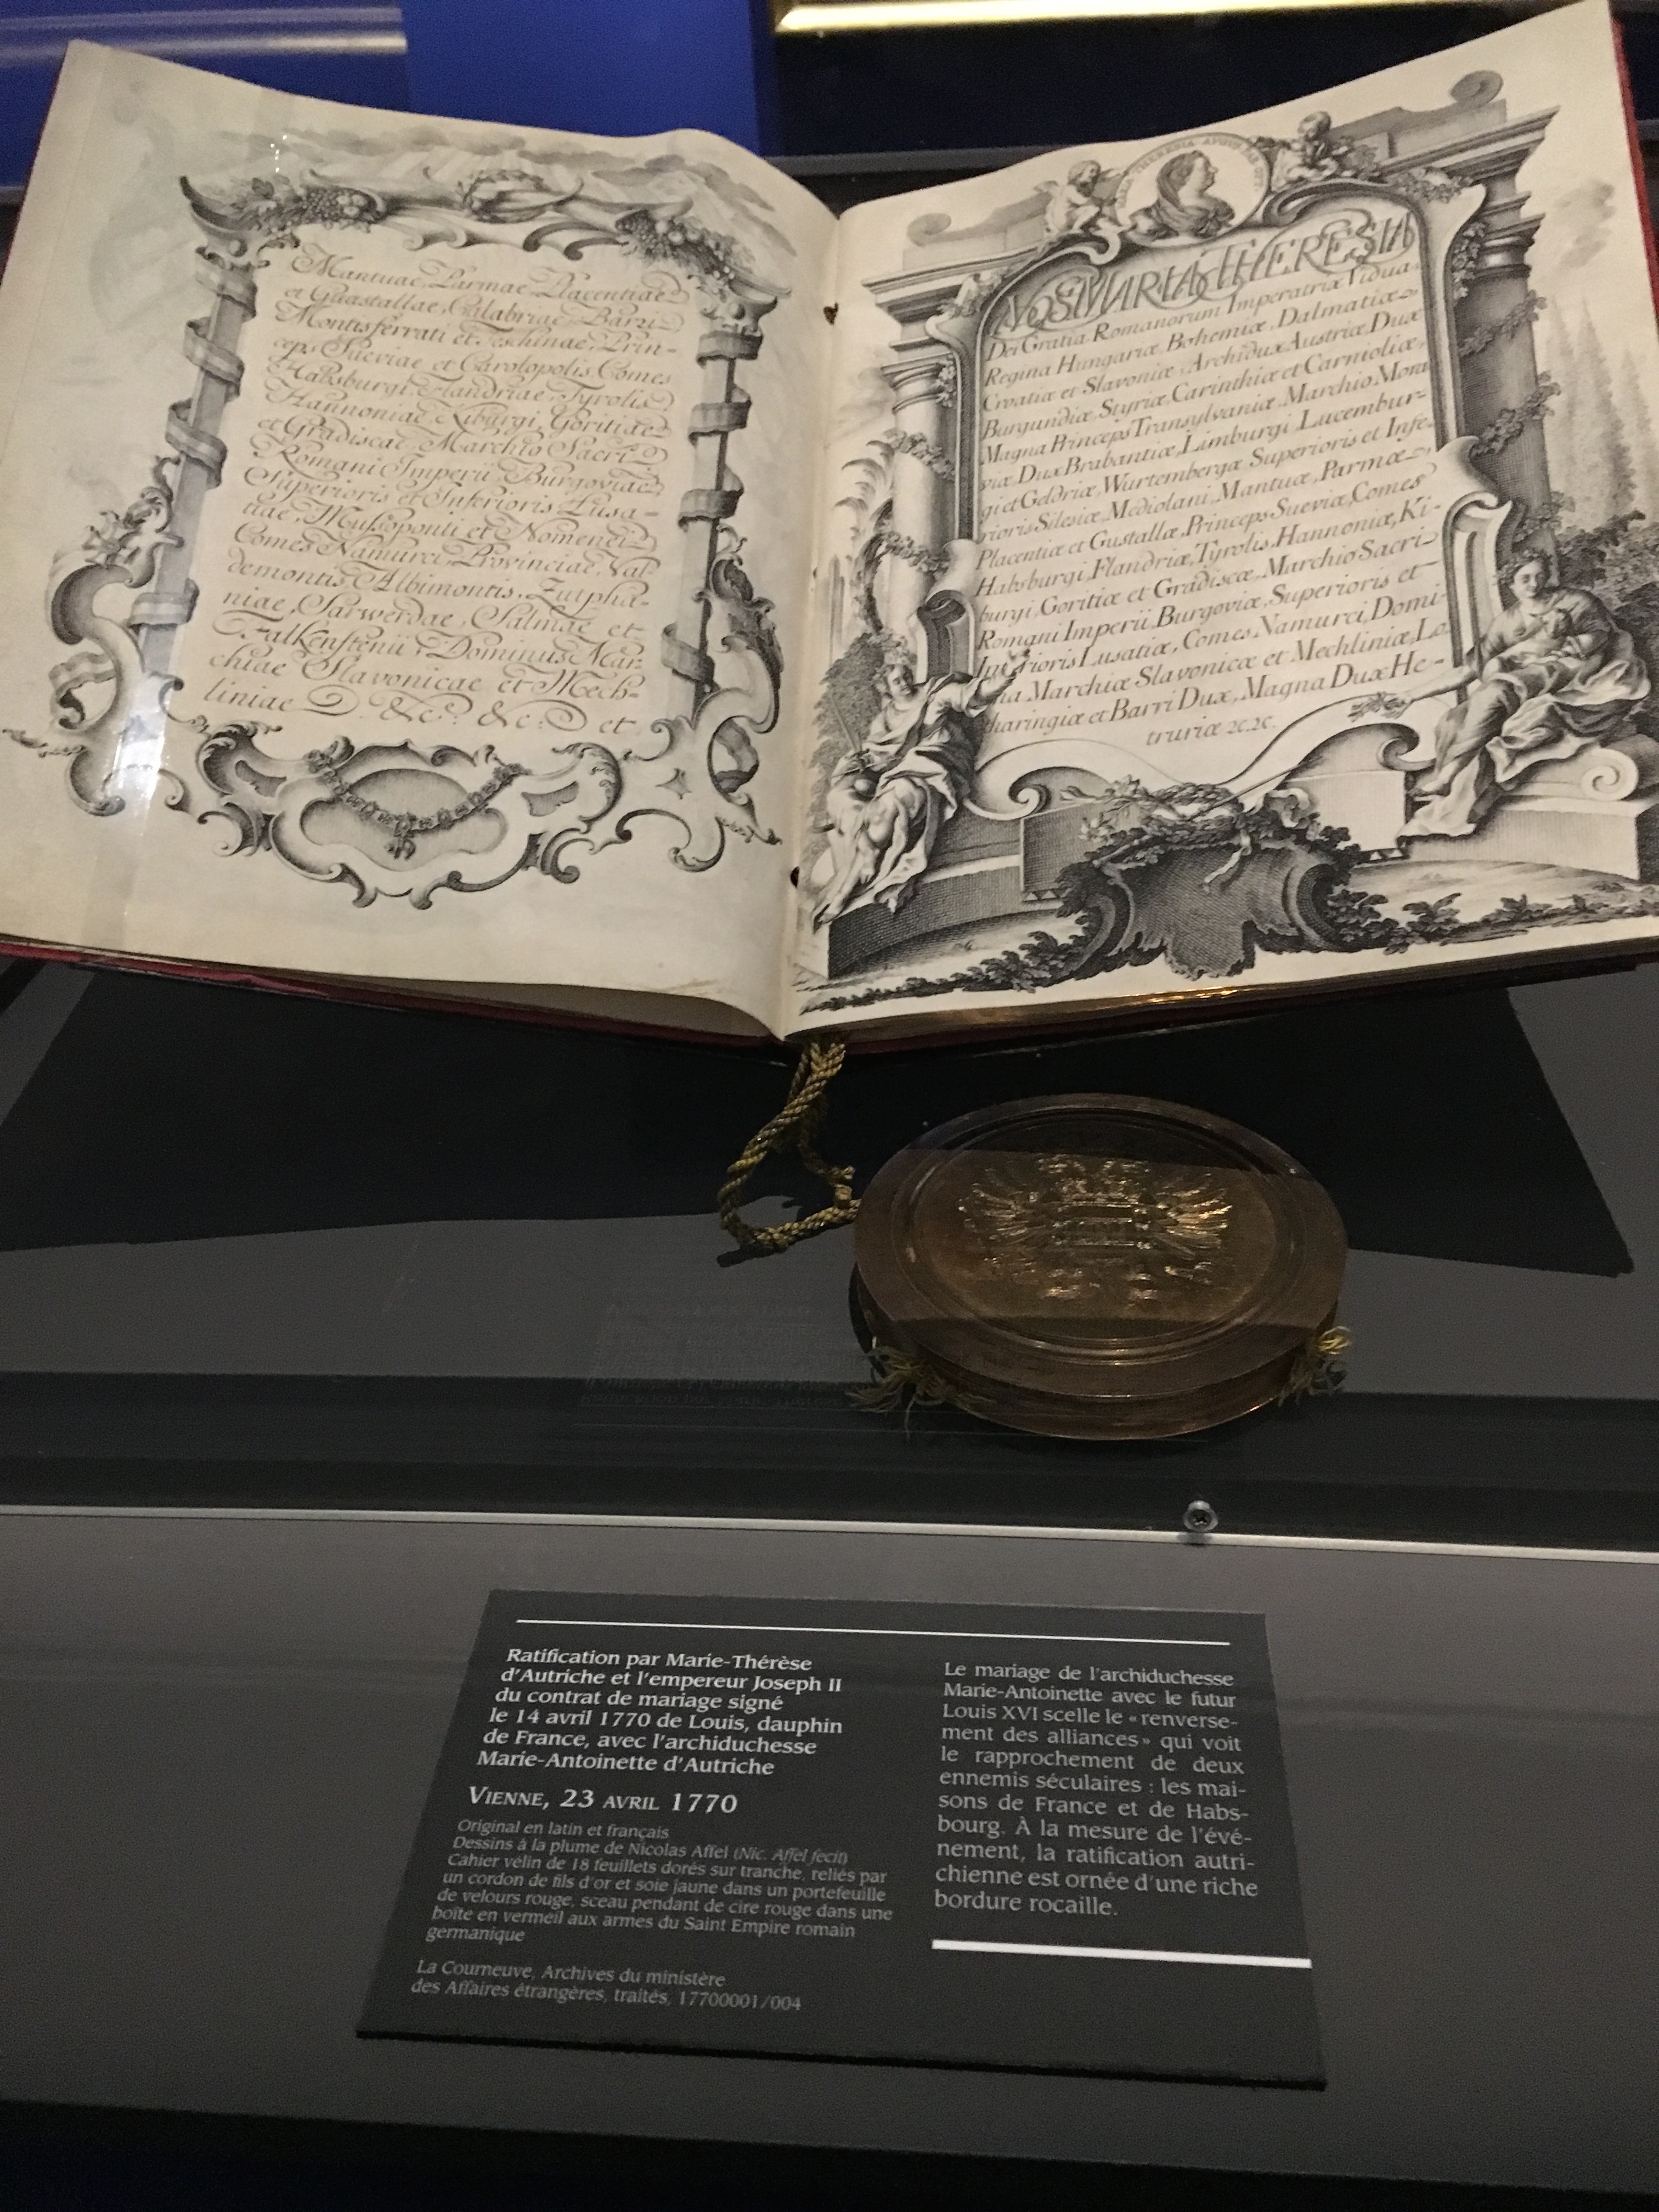 Mantuae, Parmae Placentiae
et Guastallae, Calabriae, Barri
Montisferrati et Teschinae, Prin-
ceps Sueviae et Carolopolis, Comes
Habsburgi, Flandriae, Tyrolis,
Hannoniae, Kiburgi, Goritiae
et Gradiscae, Marchio Sacri
Romani Imperii, Burgoviae,
Superioris et Inferioris Lusa-
tiae, Mussoponti et Nomenei,
Comes Namurci, Provinciae, Val-
demontis, Albimontis, Zutpha-
niae, Sarwerdae, Salmae et
Falkenstenii, Dominus Mar-
chiae Slavonicae et Mech-
liniae &c. &c. et
MARIA THERESIA AUGUSTA
NOS MARIA THERESIA
Dei Gratia Romanorum Imperatrix Vidua,
Regina Hungariæ, Bohemiæ, Dalmatiæ,
Croatiæ et Slavoniæ, Archidux Austriæ, Dux
Burgundiæ, Styriæ, Carinthiæ et Carnioliæ,
Magna Princeps Transylvaniæ, Marchio Mora
viæ, Dux Brabantiæ, Limburgi, Lucembur-
gi et Geldriæ, Wurtembergæ Superioris et Infe
rioris Silesiæ, Mediolani, Mantuæ, Parmæ,
Placentiæ et Gustallæ, Princeps Sueviæ, Comes
Habsburgi, Flandriæ, Tyrolis, Hannoniæ, Ki-
burgi, Goritiæ et Gradiscæ, Marchio Sacri
Romani Imperii, Burgoviæ, Superioris et
Inferioris Lusatiæ, Comes Namurci, Domi-
na Marchiæ Slavonicæ et Mechliniæ, Lo
tharingiæ et Barri Dux, Magna Dux He-
truriæ &c. &c.
Ratification par Marie-Thérèse
d'Autriche et l'empereur Joseph II
du contrat de mariage signé
le 14 avril 1770 de Louis, dauphin
de France, avec l'archiduchesse
Marie-Antoinette d'Autriche
VIENNE, 23 AVRIL 1770
Original en latin et français
Dessins à la plume de Nicolas Affel (Nic. Affel fecit)
Cahier vélin de 18 feuillets dorés sur tranche, reliés par
un cordon de fils d'or et soie jaune dans un portefeuille
de velours rouge, sceau pendant de cire rouge dans une
boîte en vermeil aux armes du Saint Empire romain
germanique
La Courneuve, Archives du ministère
des Affaires étrangères, traités, 17700001/004
Le mariage de l'archiduchesse
Marie-Antoinette avec le futur
Louis XVI scelle le « renverse-
ment des alliances » qui voit
le rapprochement de deux
ennemis séculaires : les mai-
sons de France et de Habs-
bourg. À la mesure de l'évé-
nement, la ratification autri-
chienne est ornée d'une riche
bordure rocaille.